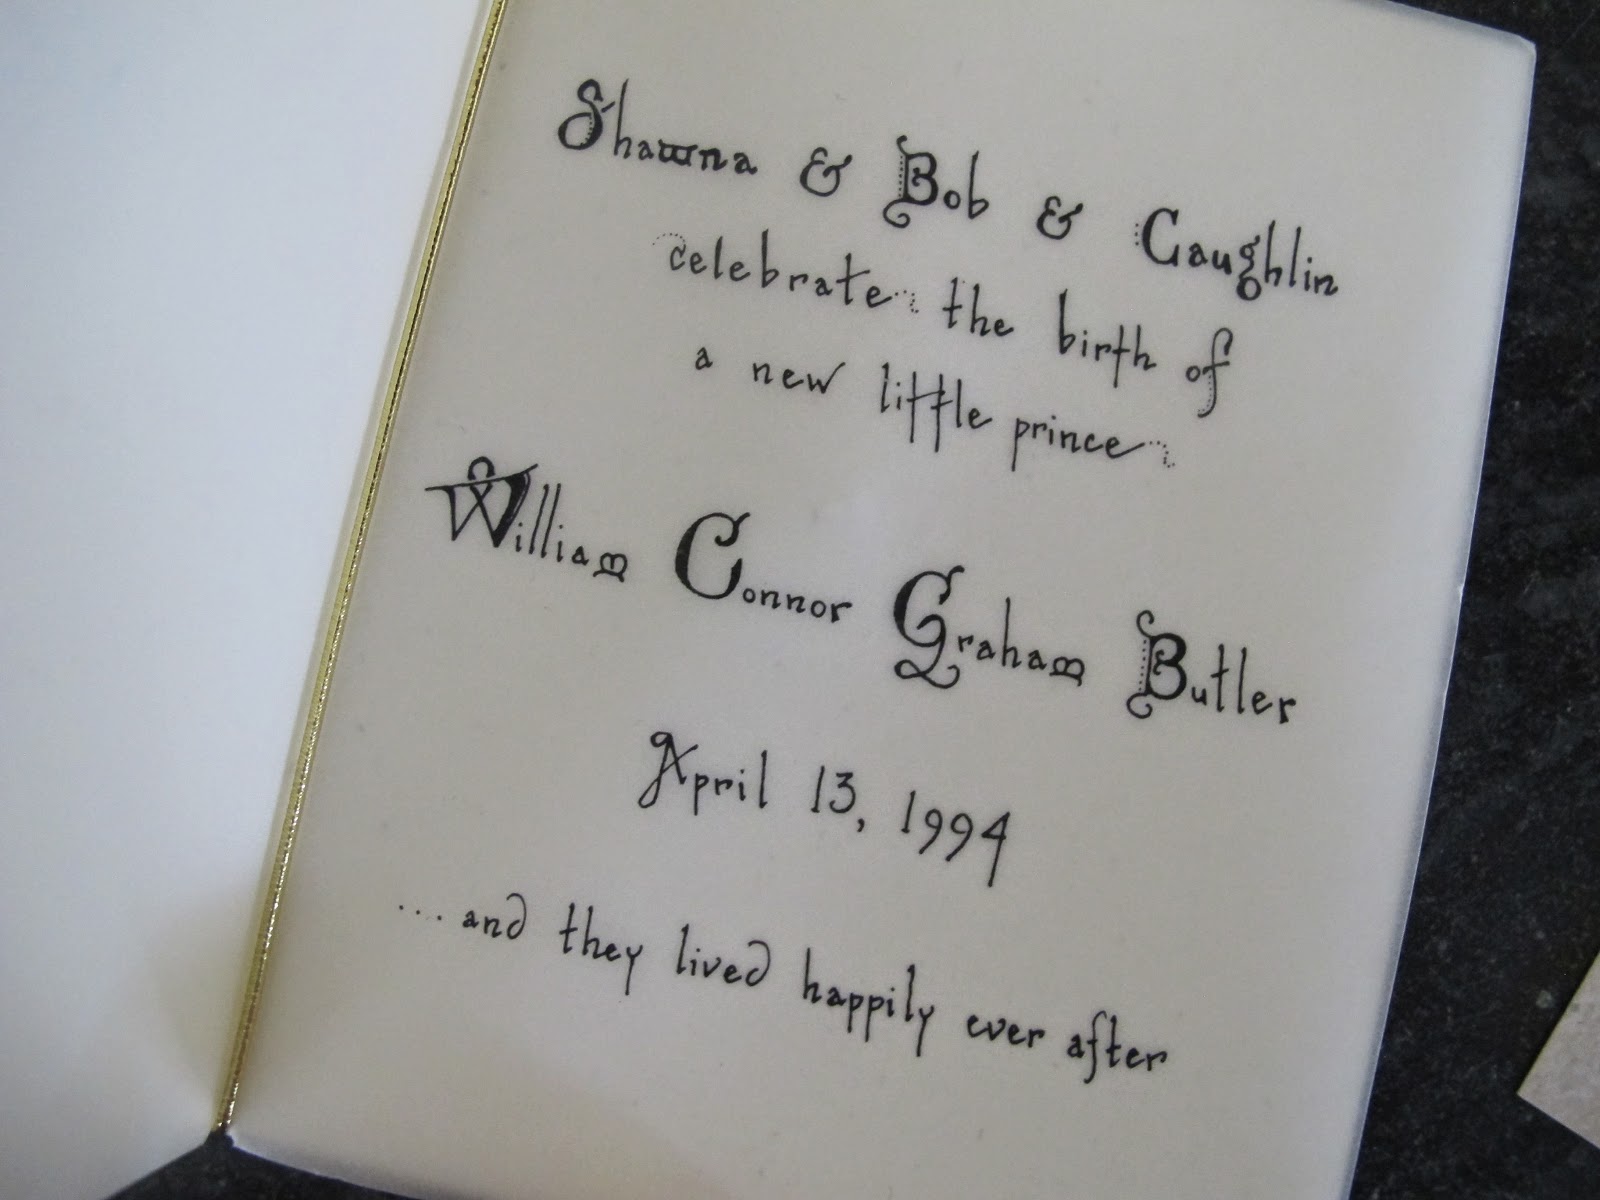 Shawna & Bob & Caughlin
celebrate the birth of
a new little prince
William Connor Graham Butler
April 13, 1994
....and they lived happily ever after